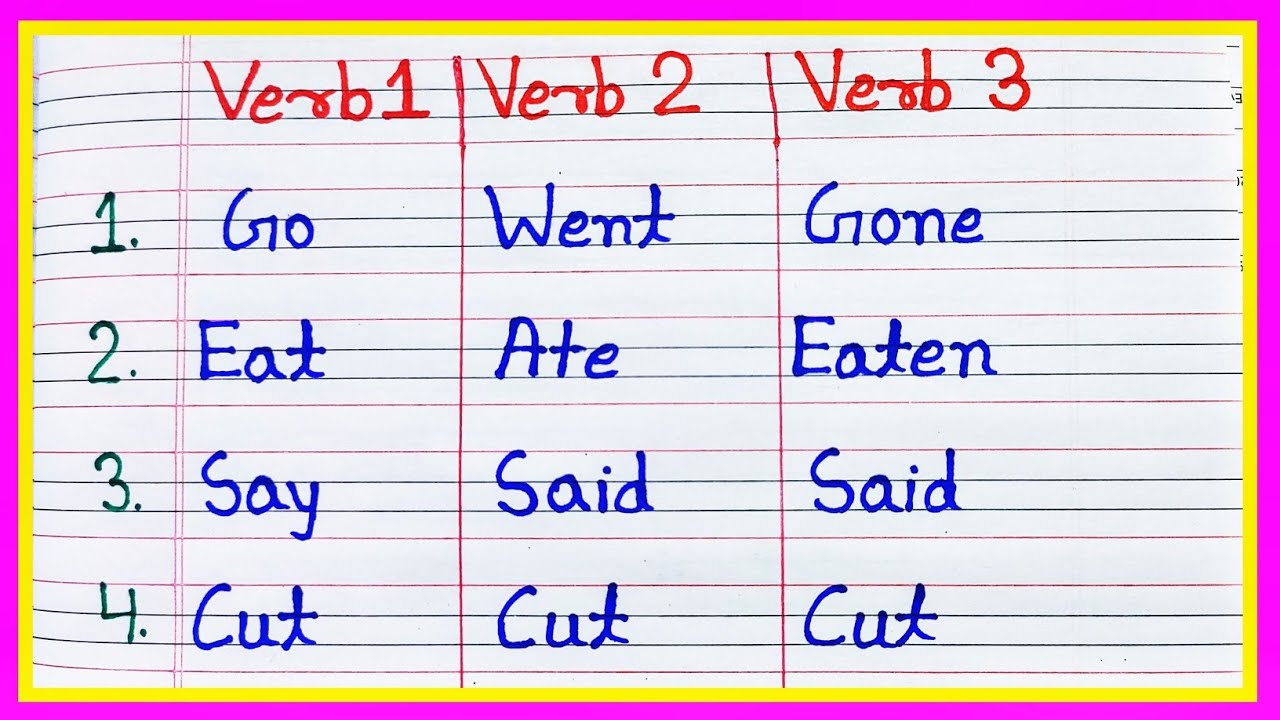 Verb 1 Verb 2 Verb 3
1. Go Went Gone
2. Eat Ate Eaten
3. Say Said Said
4. Cut Cut Cut